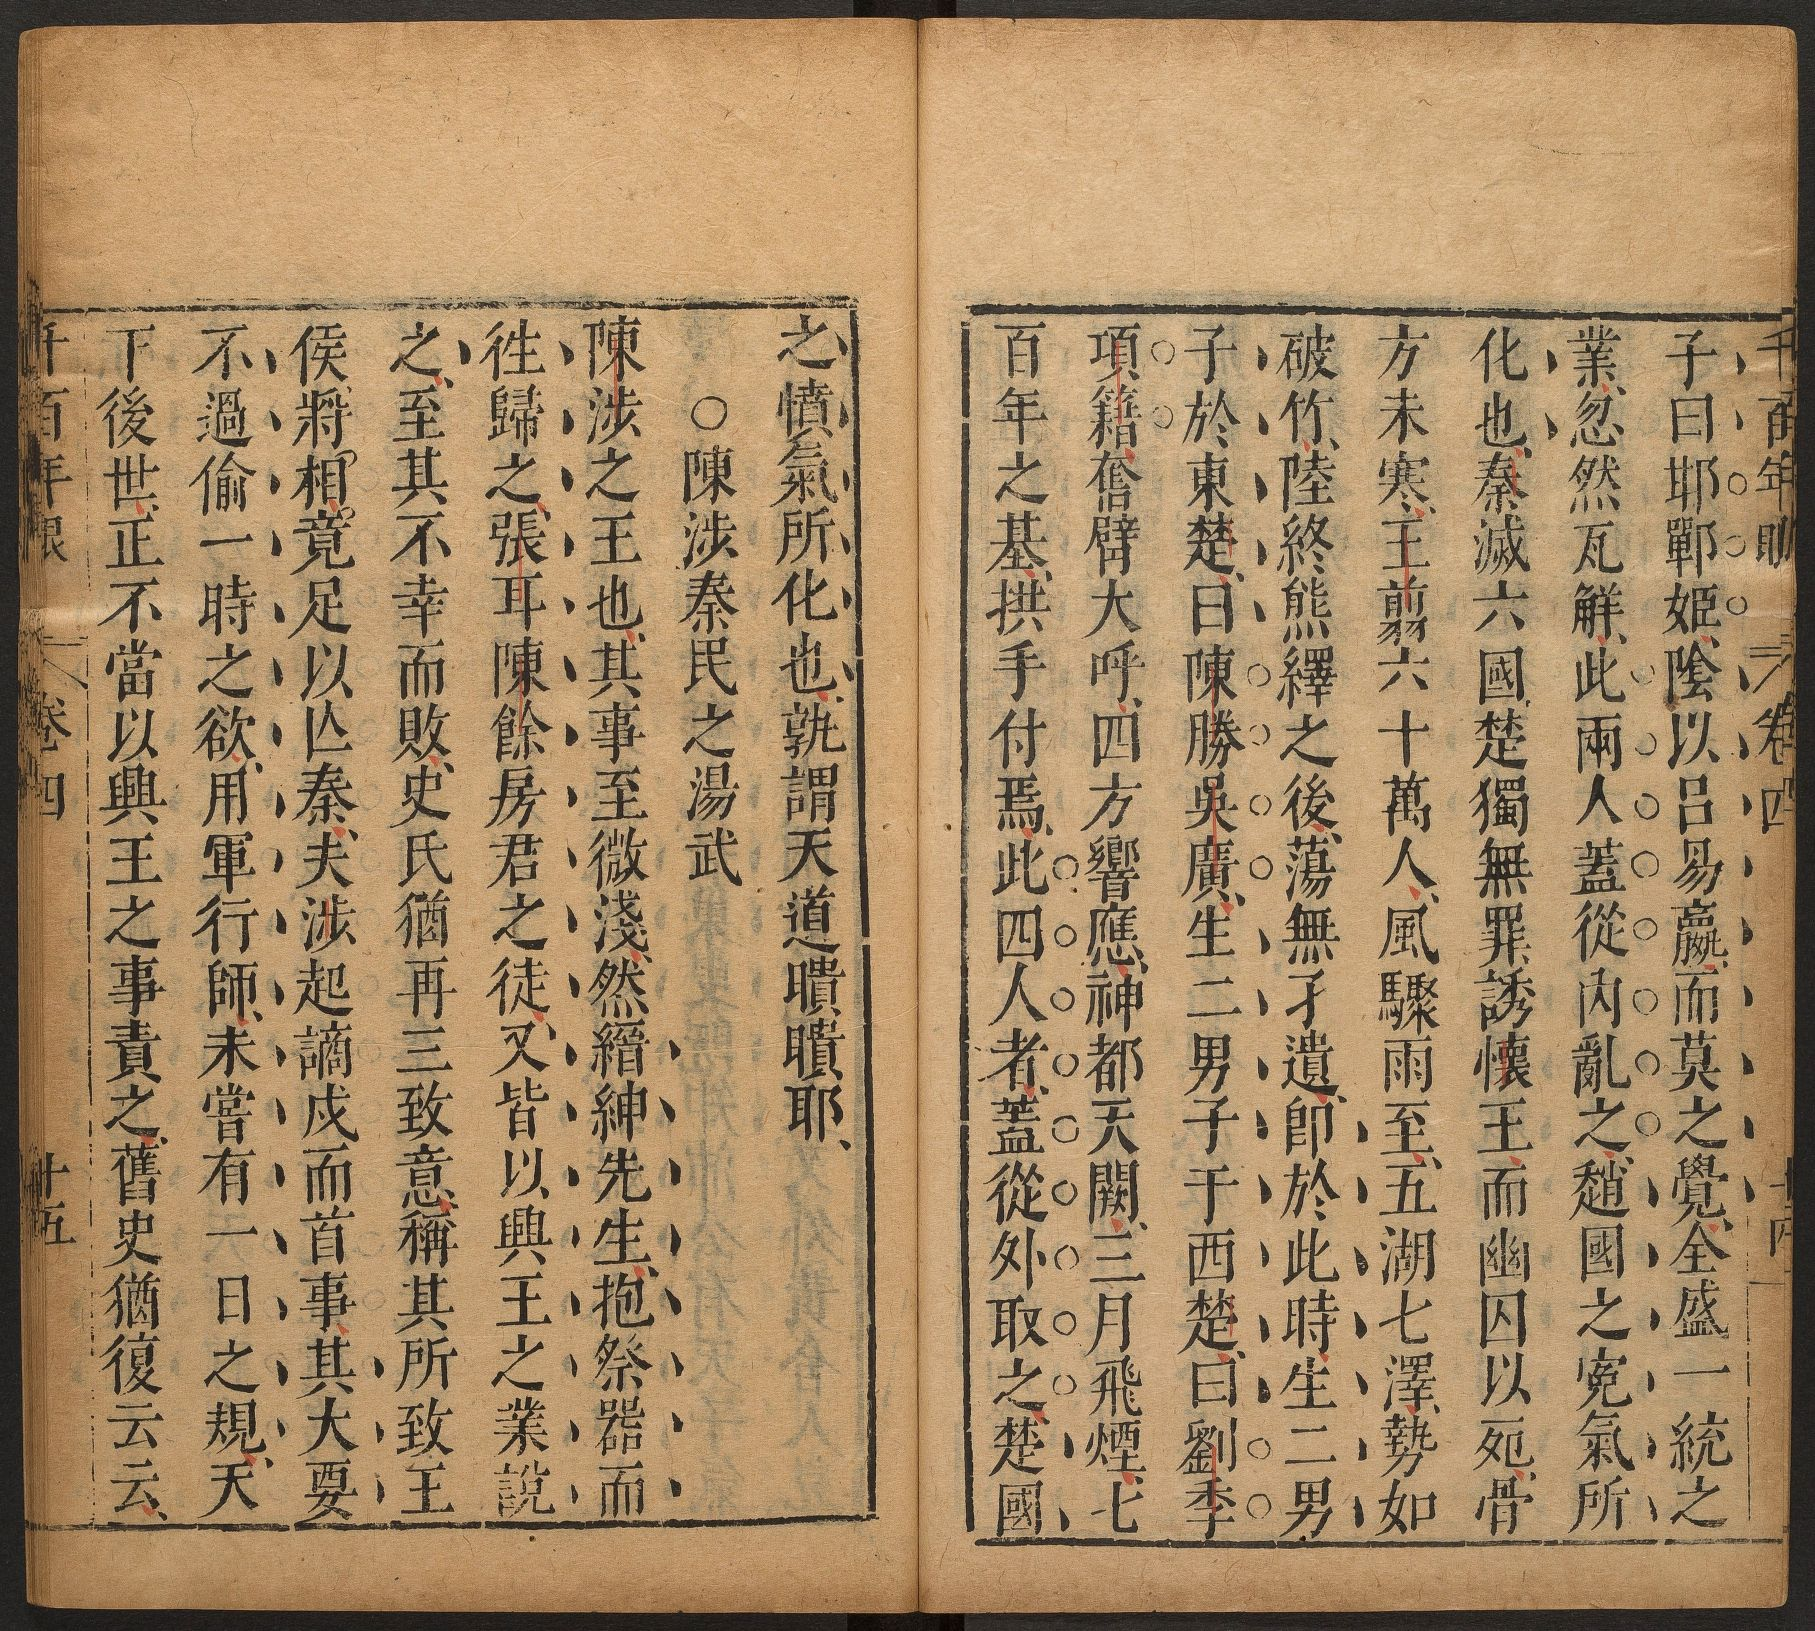 千百年眼 卷四 十四
子曰耶鄲姬陰以呂易嬴而莫之覺全盛一統之
業忽然瓦解此兩人蓋從內亂之趙國之寃氣所
化也秦滅六國楚獨無罪誘懷王而幽囚以死骨
方未寒王翦六十萬人風驟雨至五湖七澤勢如
破竹陸終熊繹之後蕩無孑遺卽於此時生二男
子於東楚曰陳勝吳廣生二男子于西楚曰劉季
項籍奮臂大呼四方響應神都天闕三月飛煙七
百年之基拱手付焉此四人者蓋從外取之楚國
之憤氣所化也孰謂天道瞶瞶耶
○陳涉秦民之湯武
陳涉之王也其事至微淺然縉紳先生抱祭器而
徃歸之張耳陳餘房君之徒又皆以興王之業說
之至其不幸而敗史氏猶再三致意稱其所致王
侯將相竟足以亾秦夫涉起謫戍而首事其大要
不過偷一時之欲用軍行師未嘗有一日之規天
下後世正不當以興王之事責之舊史猶復云云
千百年眼 卷四 十五